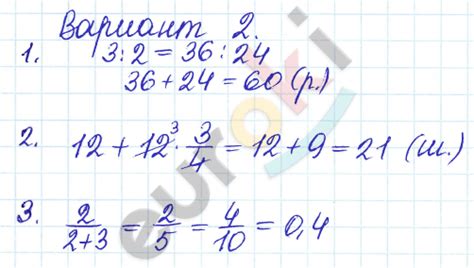 Вариант 2.
1. 3:2 = 36:24
36 + 24 = 60 (р.)
2. 12 + 12³ · 3/4 = 12 + 9 = 21 (ш.)
3. 2/(2+3) = 2/5 = 4/10 = 0,4
euroki